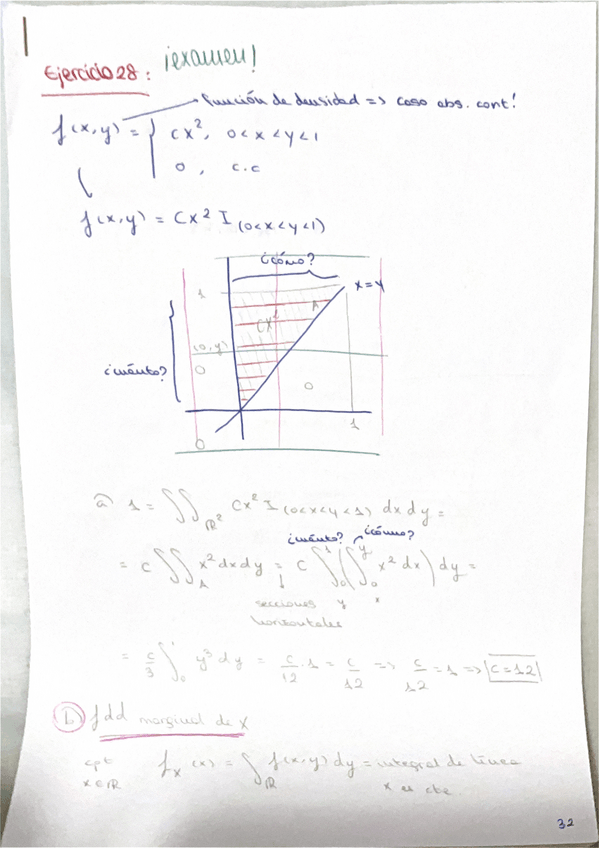 Ejercicio 28: ¡examen!
función de densidad => caso abs. cont!
f(x,y) = { cx², 0<x<y<1
0, c.c
f(x,y) = Cx² I (0<x<y<1)
¿cómo?
1
x=y
A
cx²
(0,y)
0
¿cuánto?
0
1
0
a) 1 = ∬_ℝ² Cx² I (0<x<y<1) dx dy =
¿cuánto? ¿cómo?
= C ∬_A x² dx dy = C ∫₀¹ (∫₀^y x² dx) dy =
y x
secciones
horizontales
= c/3 ∫₀¹ y³ dy = c/12 · 1 = c/12 => c/12 = 1 => C = 12
b) fdd marginal de x
cpt f_X(x) = ∫_ℝ f(x,y) dy = integral de línea
x∈ℝ x es cte
32